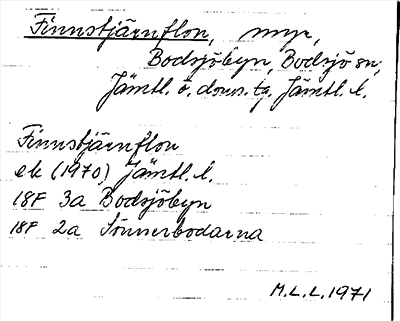 Finnstjärnflon, myr,
Bodsjöbyn, Bodsjö sn,
Jämtl. ö. doms. tg, Jämtl. l.
Finnstjärnflon
ek (1970) Jämtl. l.
18F 3a Bodsjöbyn
18F 2a Sönnerbodarna
M.L.L. 1971